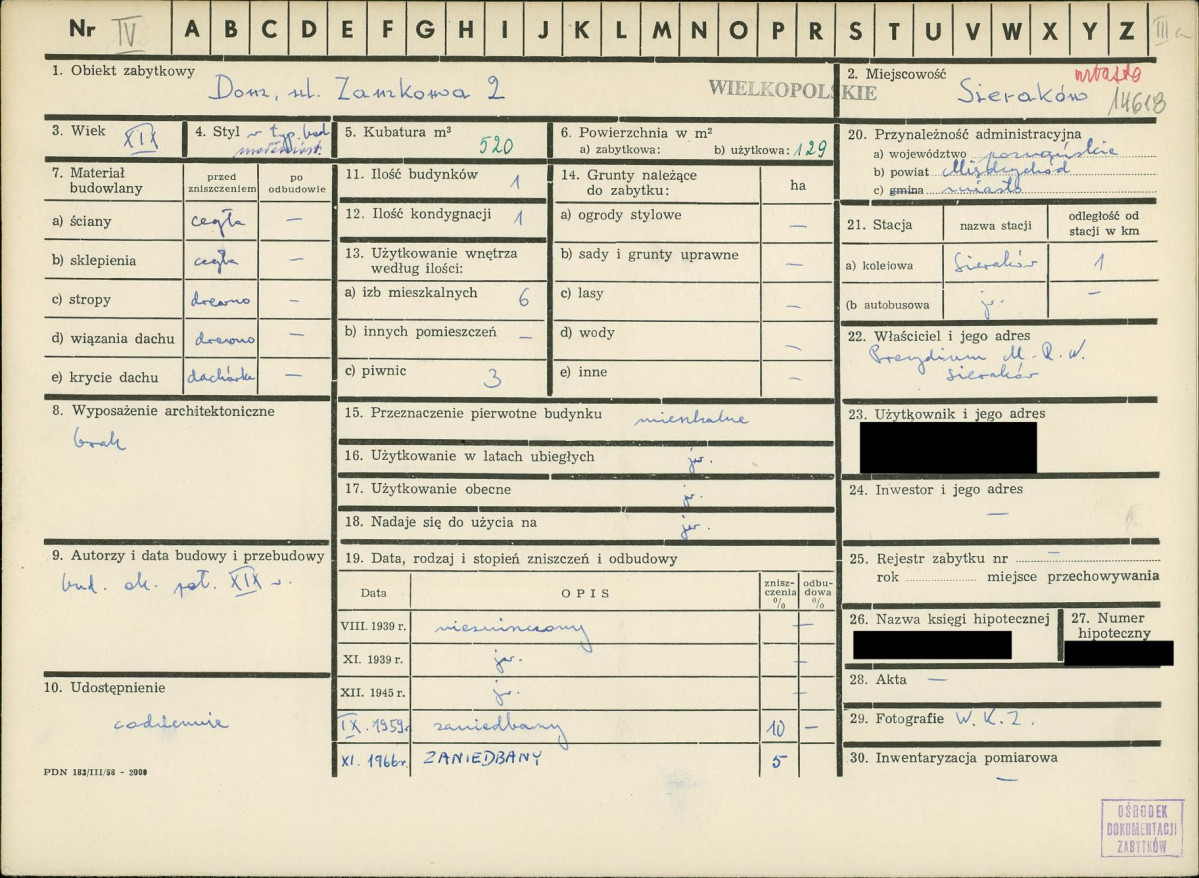 Nr IV A B C D E F G H I J K L M N O P R S T U V W X Y Z III a
1. Obiekt zabytkowy
Dom, ul. Zamkowa 2
WIELKOPOLSKIE
2. Miejscowość
miasto
Sieraków 14618
3. Wiek XIX
4. Styl w typ. bud.
małomiast.
5. Kubatura m³
520
6. Powierzchnia w m²
a) zabytkowa: b) użytkowa: 129
7. Materiał budowlany
przed zniszczeniem
po odbudowie
a) ściany cegła —
b) sklepienia cegła —
c) stropy drewno —
d) wiązania dachu drewno —
e) krycie dachu dachówka —
8. Wyposażenie architektoniczne
brak
9. Autorzy i data budowy i przebudowy
bud. ok. poł. XIX w.
10. Udostępnienie
codziennie
PDN 182/III/58 - 2000
11. Ilość budynków 1
12. Ilość kondygnacji 1
13. Użytkowanie wnętrza
według ilości:
a) izb mieszkalnych 6
b) innych pomieszczeń —
c) piwnic 3
14. Grunty należące
do zabytku: ha
a) ogrody stylowe —
b) sady i grunty uprawne —
c) lasy —
d) wody —
e) inne —
15. Przeznaczenie pierwotne budynku mieszkalne
16. Użytkowanie w latach ubiegłych jw.
17. Użytkowanie obecne jw.
18. Nadaje się do użycia na jw.
19. Data, rodzaj i stopień zniszczeń i odbudowy
Data OPIS zniszczenia % odbudowa %
VIII. 1939 r. niezniszczony —
XI. 1939 r. jw. —
XII. 1945 r. jw. —
IX. 1959r. zaniedbany 10 —
XI. 1966r. ZANIEDBANY 5
20. Przynależność administracyjna
a) województwo poznańskie
b) powiat Międzychód
c) gmina miasto
21. Stacja nazwa stacji odległość od stacji w km
a) kolejowa Sieraków 1
(b autobusowa jw. —
22. Właściciel i jego adres
Prezydium M.R.N.
Sieraków
23. Użytkownik i jego adres
24. Inwestor i jego adres
—
25. Rejestr zabytku nr —
rok miejsce przechowywania
26. Nazwa księgi hipotecznej
27. Numer
hipoteczny
28. Akta —
29. Fotografie W. K. Z.
30. Inwentaryzacja pomiarowa
—
OŚRODEK
DOKUMENTACJI
ZABYTKÓW